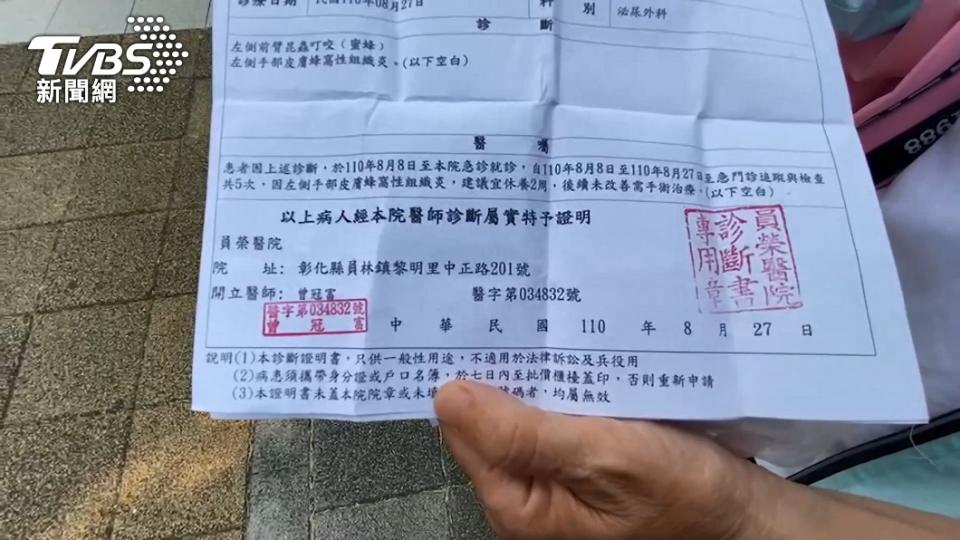 TVBS
新聞網
診療日期 民國110年08月27日 科別 泌尿外科
診斷
左側前臂昆蟲叮咬(蜜蜂)
左側手部皮膚蜂窩性組織炎。(以下空白)
醫囑
患者因上述診斷,於110年8月8日至本院急診就診,自110年8月8日至110年8月27日至急門診追蹤與檢查
共5次,因左側手部皮膚蜂窩性組織炎,建議宜休養2周,後續未改善需手術治療。(以下空白)
以上病人經本院醫師診斷屬實特予證明
員榮醫院
院 址: 彰化縣員林鎮黎明里中正路201號
開立醫師: 曾冠富 醫字第034832號
醫字第034832號
曾冠富
員榮醫院
診斷書
專用章
中華民國 110 年 8 月 27 日
說明(1)本診斷證明書,只供一般性用途,不適用於法律訴訟及兵役用
(2)病患須攜帶身分證或戶口名簿,於七日內至批價櫃檯蓋印,否則重新申請
(3)本證明書未蓋本院院章或未填 號碼者,均屬無效
1988